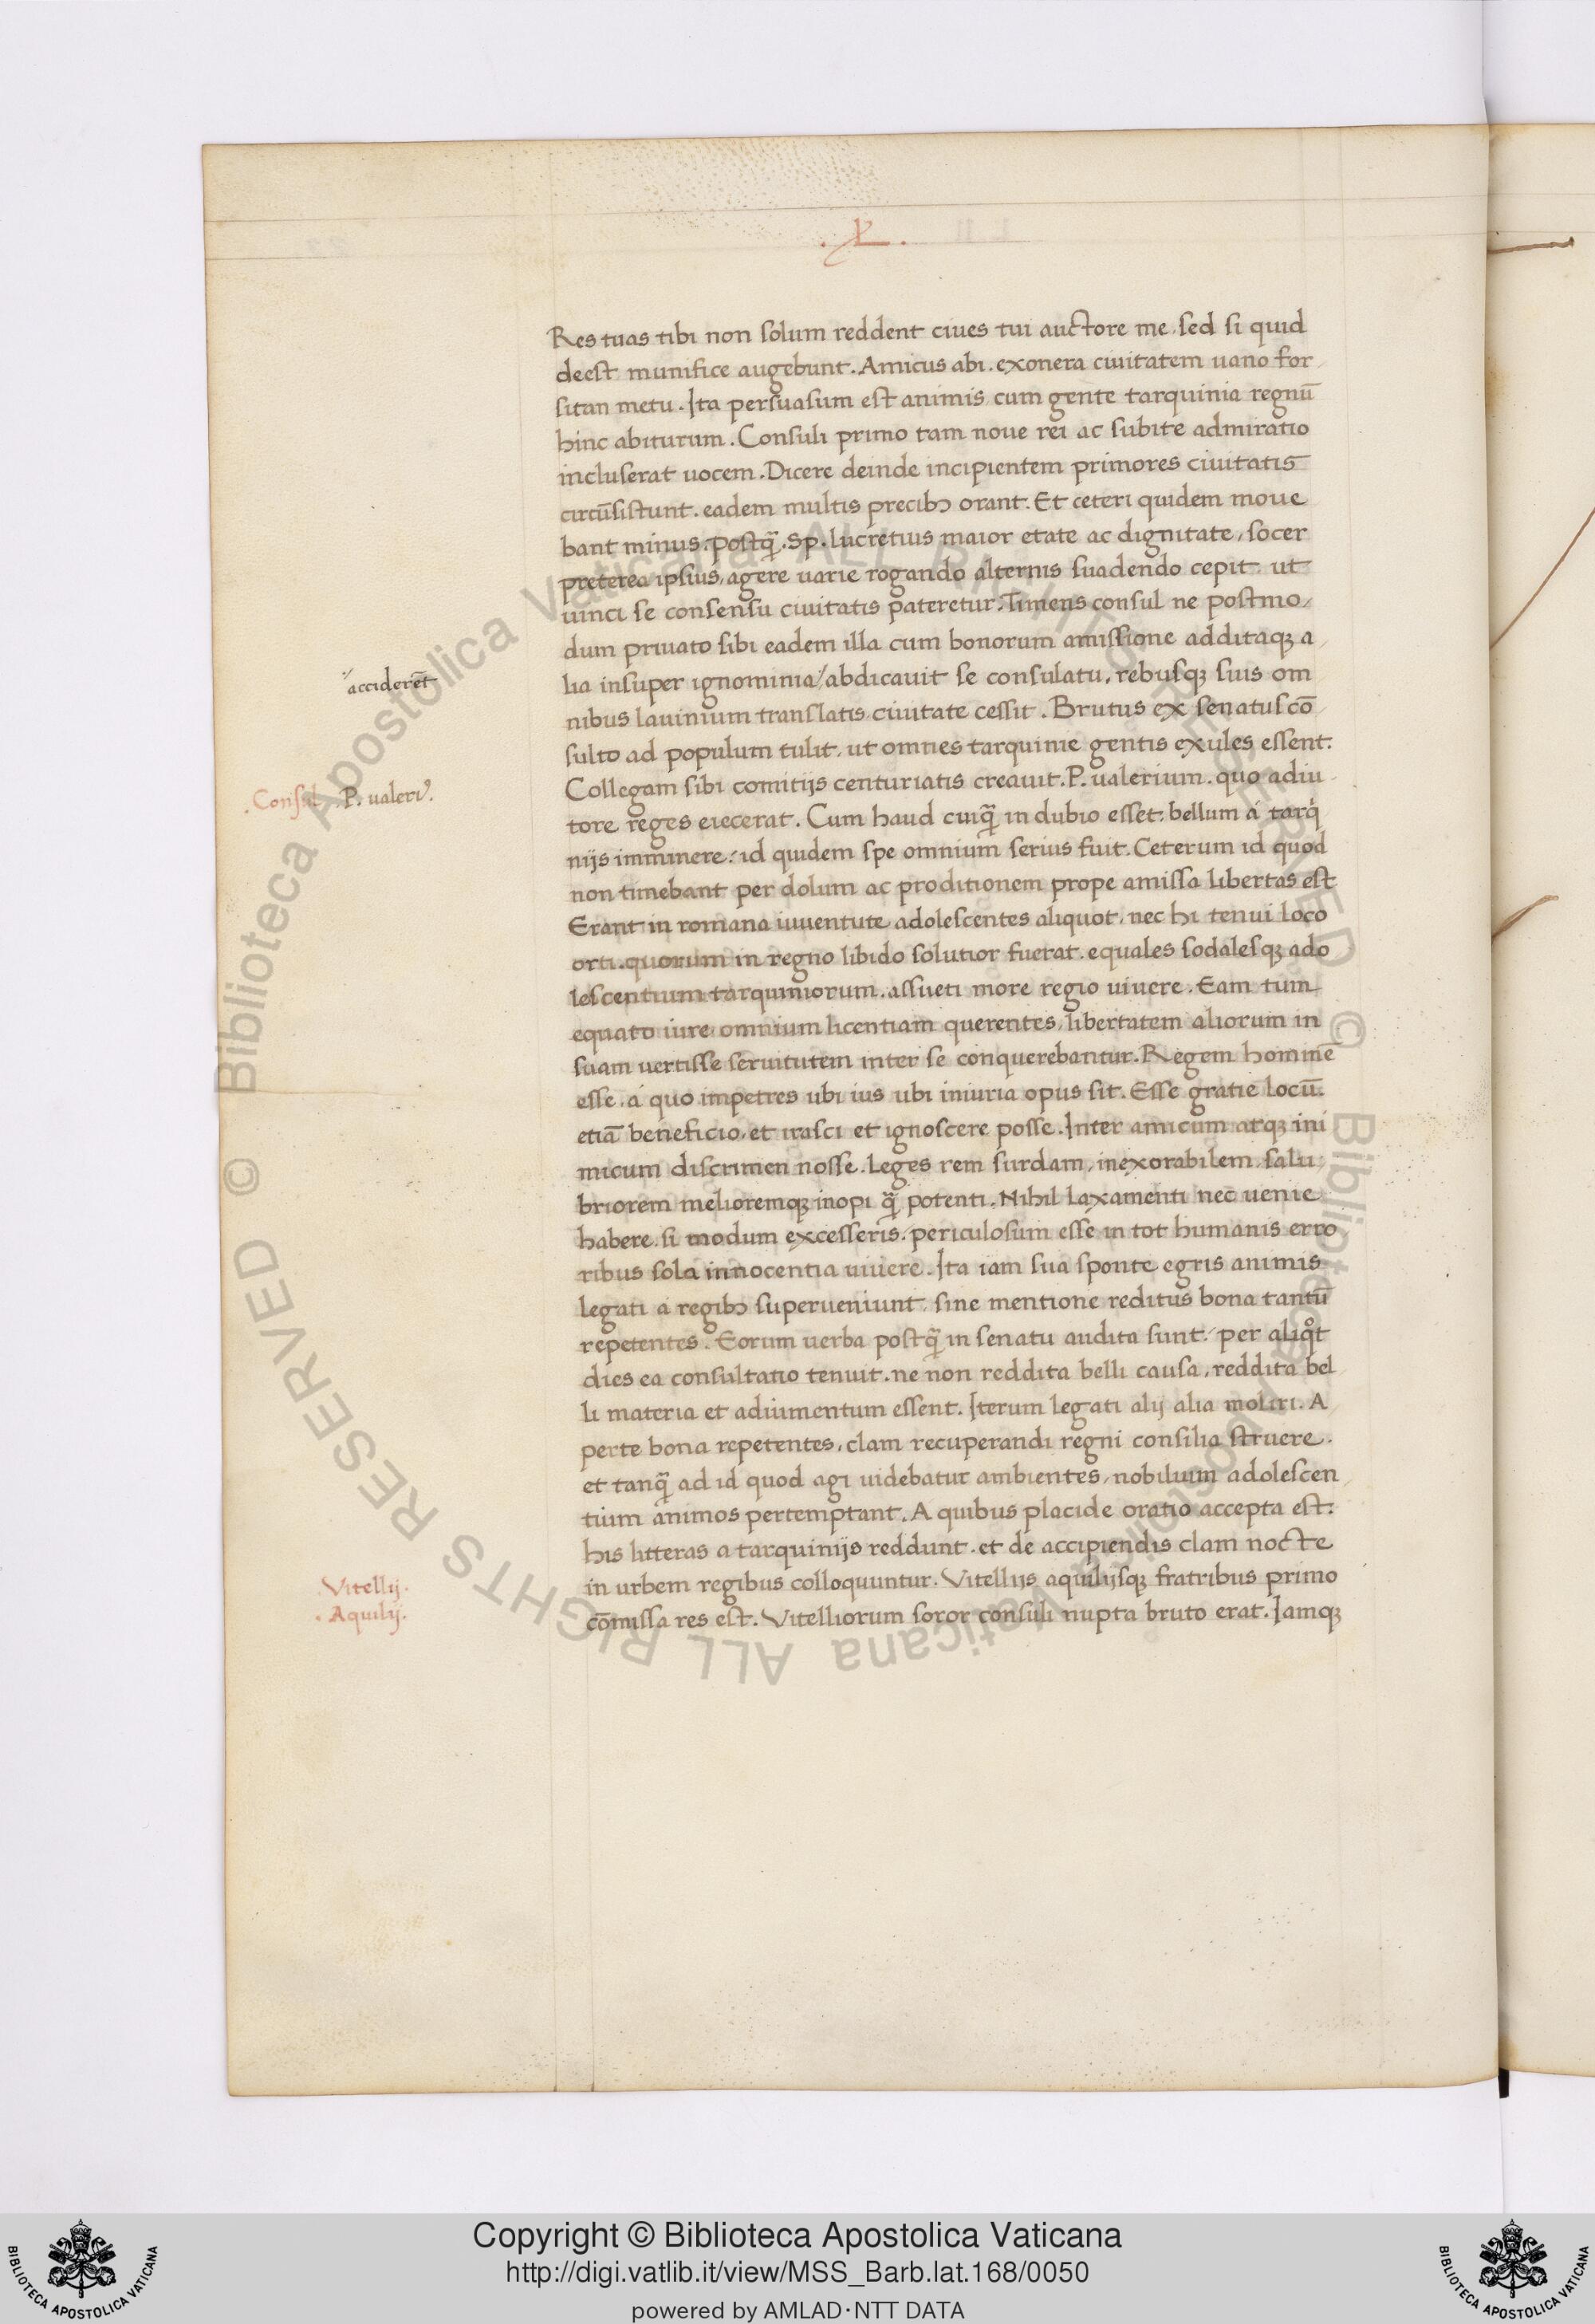 .L.
Res tuas tibi non solum reddent ciues tui auctore me, sed si quid
deest munifice augebunt. Amicus abi. exonera ciuitatem uano for
sitan metu. Ita persuasum est animis cum gente tarquinia regnū
hinc abiturum. Consuli primo tam noue rei ac subite admiratio
incluserat uocem. Dicere deinde incipientem primores ciuitatis
circūsistunt. eadem multis precibꝫ orant. Et ceteri quidem moue
bant minus. postq̄ Sp. lucretius maior etate ac dignitate, socer
preterea ipsius, agere uarie rogando alternis suadendo cepit ut
uinci se consensu ciuitatis pateretur. Timens consul ne postmo
dum priuato sibi eadem illa cum bonorum amissione additaqꝫ a
lia insuper ignominia/ abdicauit se consulatu, rebusqꝫ suis om
acciderēt
nibus lauinium translatis ciuitate cessit. Brutus ex senatus cō
sulto ad populum tulit, ut omnes tarquinie gentis exules essent.
Collegam sibi comitijs centuriatis creauit. P. ualerium. quo adiu
.Consul. P. ualeriꝰ.
tore reges eiecerat. Cum haud cuiq̄ in dubio esset bellum á tarq̇
nijs imminere: id quidem spe omnium serius fuit. Ceterum id quod
non timebant per dolum ac proditionem prope amissa libertas est
Erant in romana iuuentute adolescentes aliquot, nec hi tenui loco
orti. quorum in regno libido solutior fuerat. equales sodalesqꝫ ado
lescentium tarquiniorum. assueti more regio uiuere. Eam tum
equato iure omnium licentiam querentes, libertatem aliorum in
suam uertisse seruitutem inter se conquerebantur. Regem hominē
esse. á quo impetres ubi ius ubi iniuria opus sit. Esse gratie locū.
etiā beneficio, et irasci et ignoscere posse. Inter amicum atqꝫ ini
micum discrimen nosse. Leges rem surdam, inexorabilem, salu
briorem melioremqꝫ inopi q̄ potenti. Nihil laxamenti nec uenie
habere. si modum excesseris. periculosum esse in tot humanis erro
ribus sola innocentia uiuere. Ita iam sua sponte egris animis
legati á regibꝫ superueniunt, sine mentione reditus bona tantū
repetentes. Eorum uerba postq̄ in senatu audita sunt: per aliqͦt
dies ea consultatio tenuit. ne non reddita belli causa, reddita bel
li materia et adiumentum essent. Iterum legati alij alia moliri. A
perte bona repetentes, clam recuperandi regni consilia struere.
et tanq̄ ad id quod agi uidebatur ambientes, nobilium adolescen
tium animos pertemptant. A quibus placide oratio accepta est:
his litteras a tarquinijs reddunt. et de accipiendis clam nocte
in urbem regibus colloquuntur. Vitellijs aquilijsqꝫ fratribus primo
.Vitellij.
cōmissa res est. Vitelliorum soror consuli nupta bruto erat. Iamqꝫ
.Aquilij.
© Biblioteca Apostolica Vaticana ALL RIGHTS RESERVED © Biblioteca Apostolica Vaticana ALL RIGHTS RESERVED
Copyright © Biblioteca Apostolica Vaticana
http://digi.vatlib.it/view/MSS_Barb.lat.168/0050
powered by AMLAD·NTT DATA
BIBLIOTECA APOSTOLICA VATICANA
BIBLIOTECA APOSTOLICA VATICANA